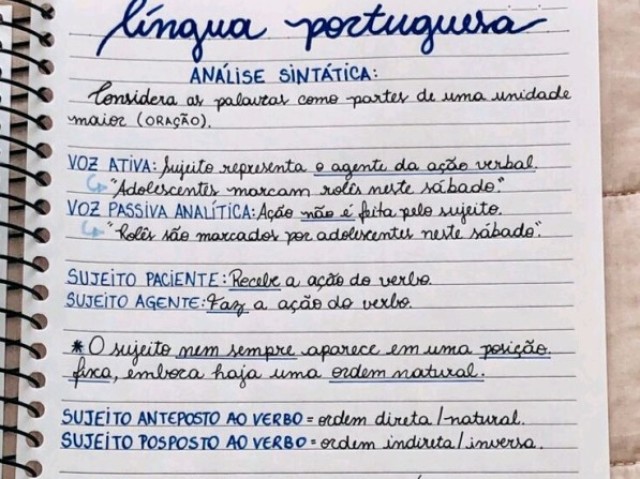 língua portuguesa
ANÁLISE SINTÁTICA:
Considera as palavras como partes de uma unidade
maior (ORAÇÃO).
VOZ ATIVA: Sujeito representa o agente da ação verbal.
"Adolescentes marcam rolês neste sábado."
VOZ PASSIVA ANALÍTICA: Ação não é feita pelo sujeito.
"Rolês são marcados por adolescentes neste sábado".
SUJEITO PACIENTE: Recebe a ação do verbo.
SUJEITO AGENTE: Faz a ação do verbo.
* O sujeito nem sempre aparece em uma posição
fixa, embora haja uma ordem natural.
SUJEITO ANTEPOSTO AO VERBO = ordem direta/natural.
SUJEITO POSPOSTO AO VERBO = ordem indireta/inversa.